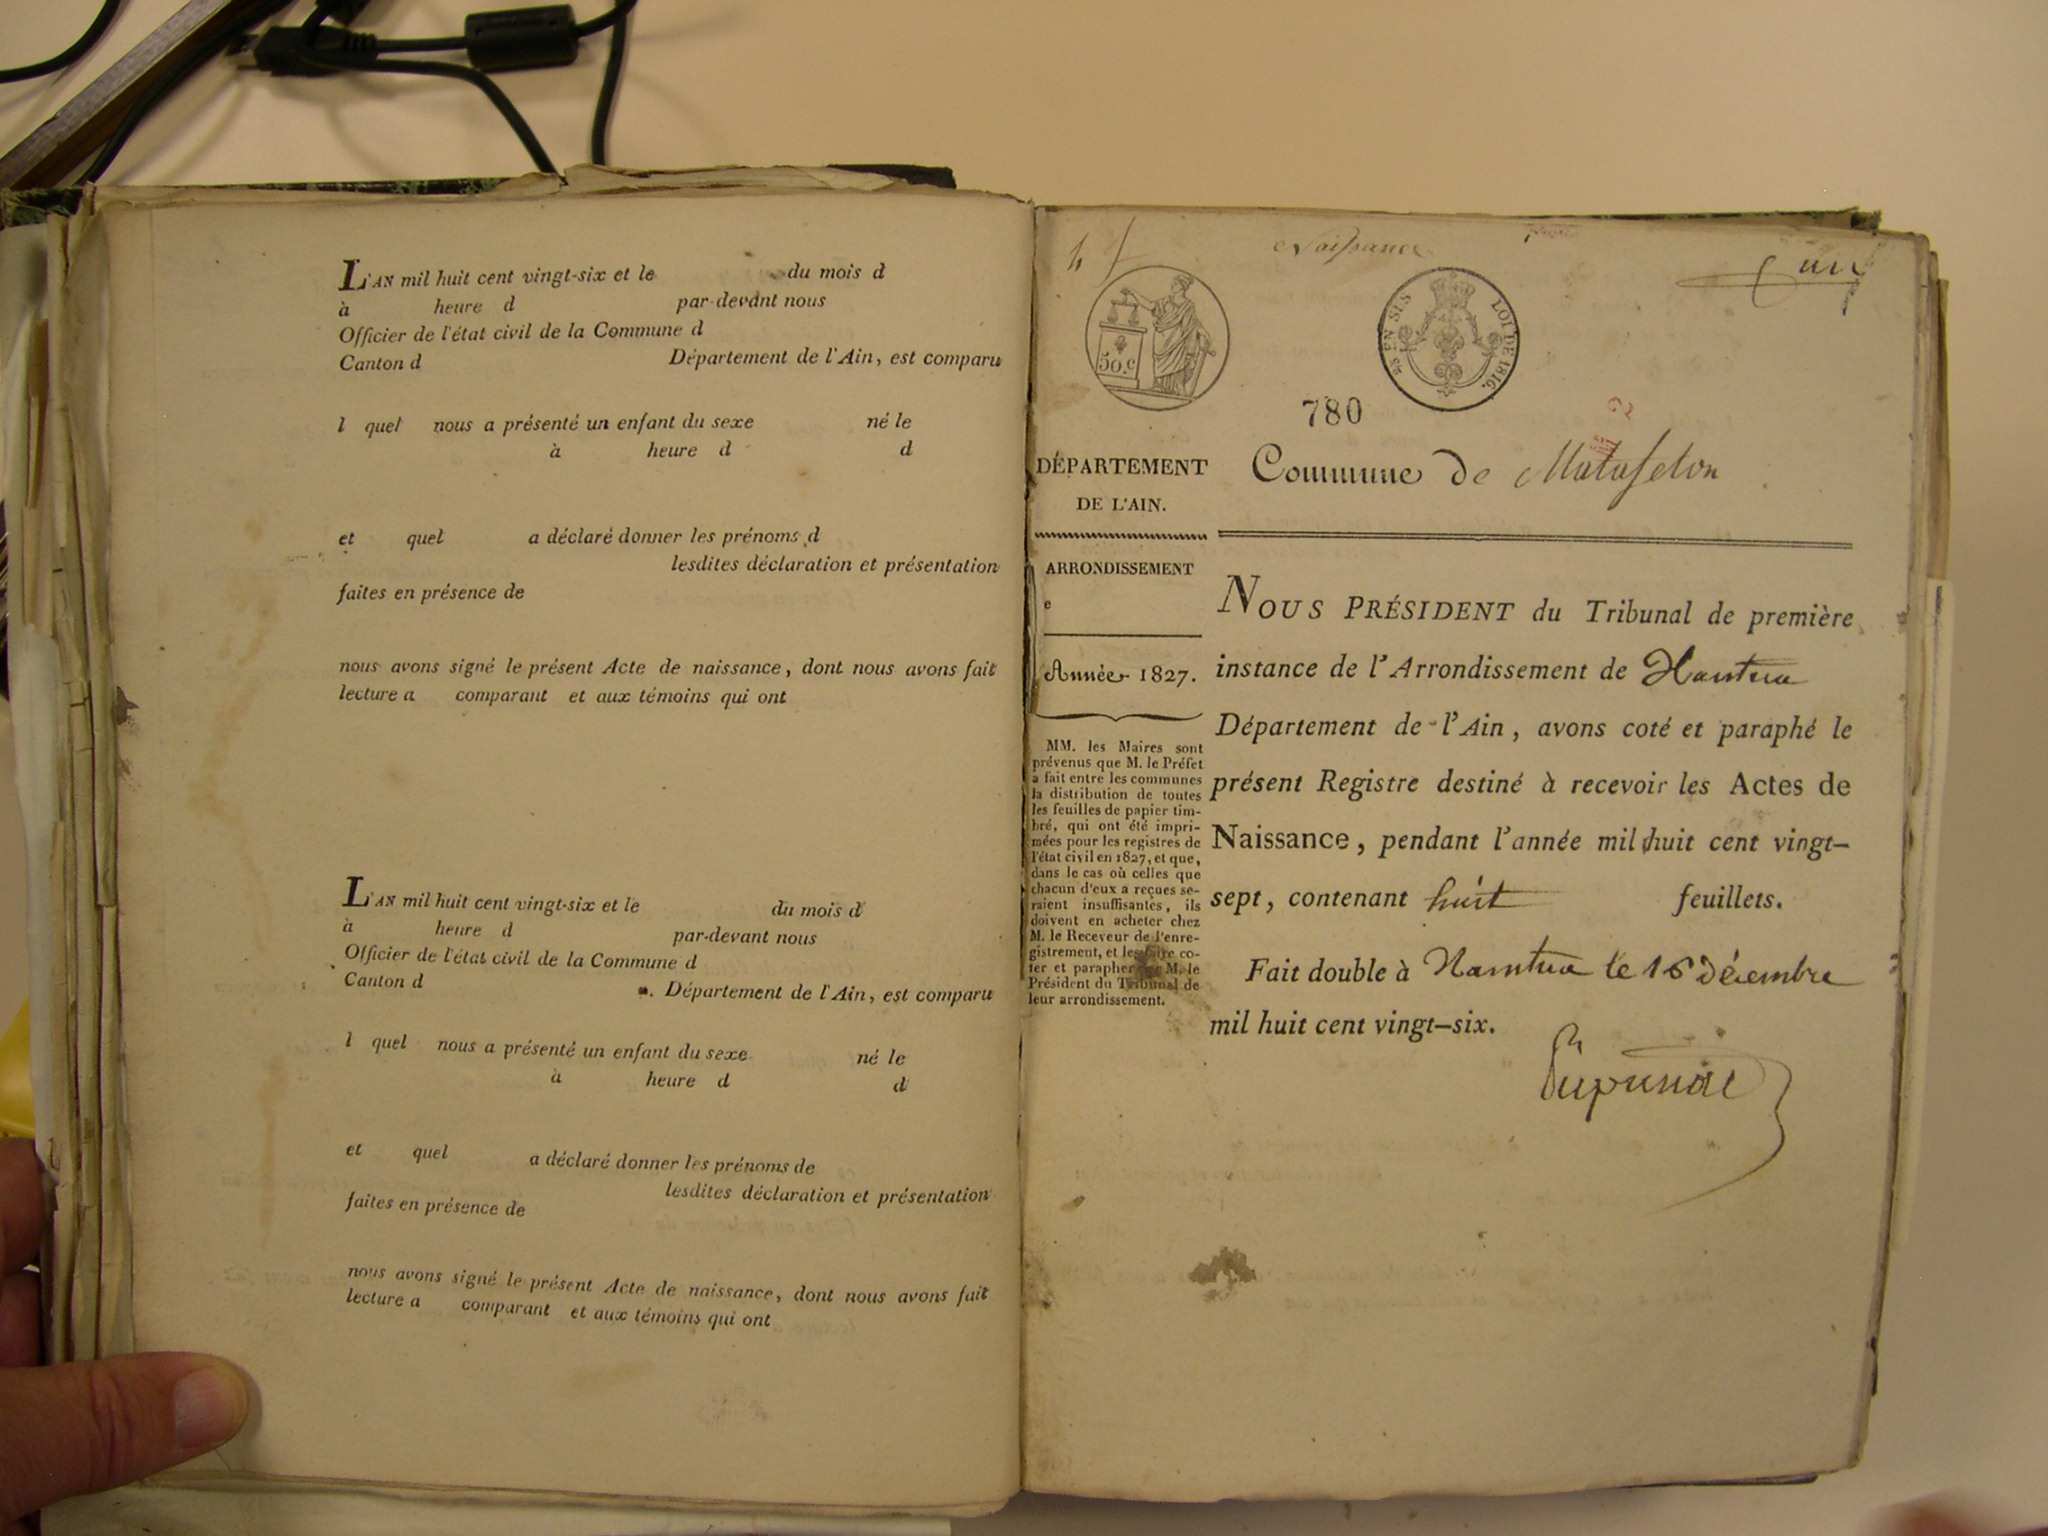 L'AN mil huit cent vingt-six et le du mois d
à heure d par-devant nous
Officier de l'état civil de la Commune d
Canton d Département de l'Ain, est comparu
l quel nous a présenté un enfant du sexe né le
à heure d d
et quel a déclaré donner les prénoms d
lesdites déclaration et présentation
faites en présence de
nous avons signé le présent Acte de naissance, dont nous avons fait
lecture a comparant et aux témoins qui ont
L'AN mil huit cent vingt-six et le du mois d
à heure d par-devant nous
Officier de l'état civil de la Commune d
Canton d Département de l'Ain, est comparu
l quel nous a présenté un enfant du sexe né le
à heure d d
et quel a déclaré donner les prénoms de
lesdites déclaration et présentation
faites en présence de
nous avons signé le présent Acte de naissance, dont nous avons fait
lecture a comparant et aux témoins qui ont
Naissance
un
50.c
EN SUS LOI DE 1816.
780
DÉPARTEMENT
DE L'AIN.
Commune de Matafelon
ARRONDISSEMENT
e
Année 1827.
MM. les Maires sont
prévenus que M. le Préfet
a fait entre les communes
la distribution de toutes
les feuilles de papier tim-
bré, qui ont été impri-
mées pour les registres de
l'état civil en 1827, et que,
dans le cas où celles que
chacun d'eux a reçues se-
raient insuffisantes, ils
doivent en acheter chez
M. le Receveur de l'enre-
gistrement, et les faire co-
ter et parapher par M. le
Président du Tribunal de
leur arrondissement.
NOUS PRÉSIDENT du Tribunal de première
instance de l'Arrondissement de Nantua
Département de l'Ain, avons coté et paraphé le
présent Registre destiné à recevoir les Actes de
Naissance, pendant l'année mil huit cent vingt-
sept, contenant huit feuillets.
Fait double à Nantua le 16 Décembre
mil huit cent vingt-six.